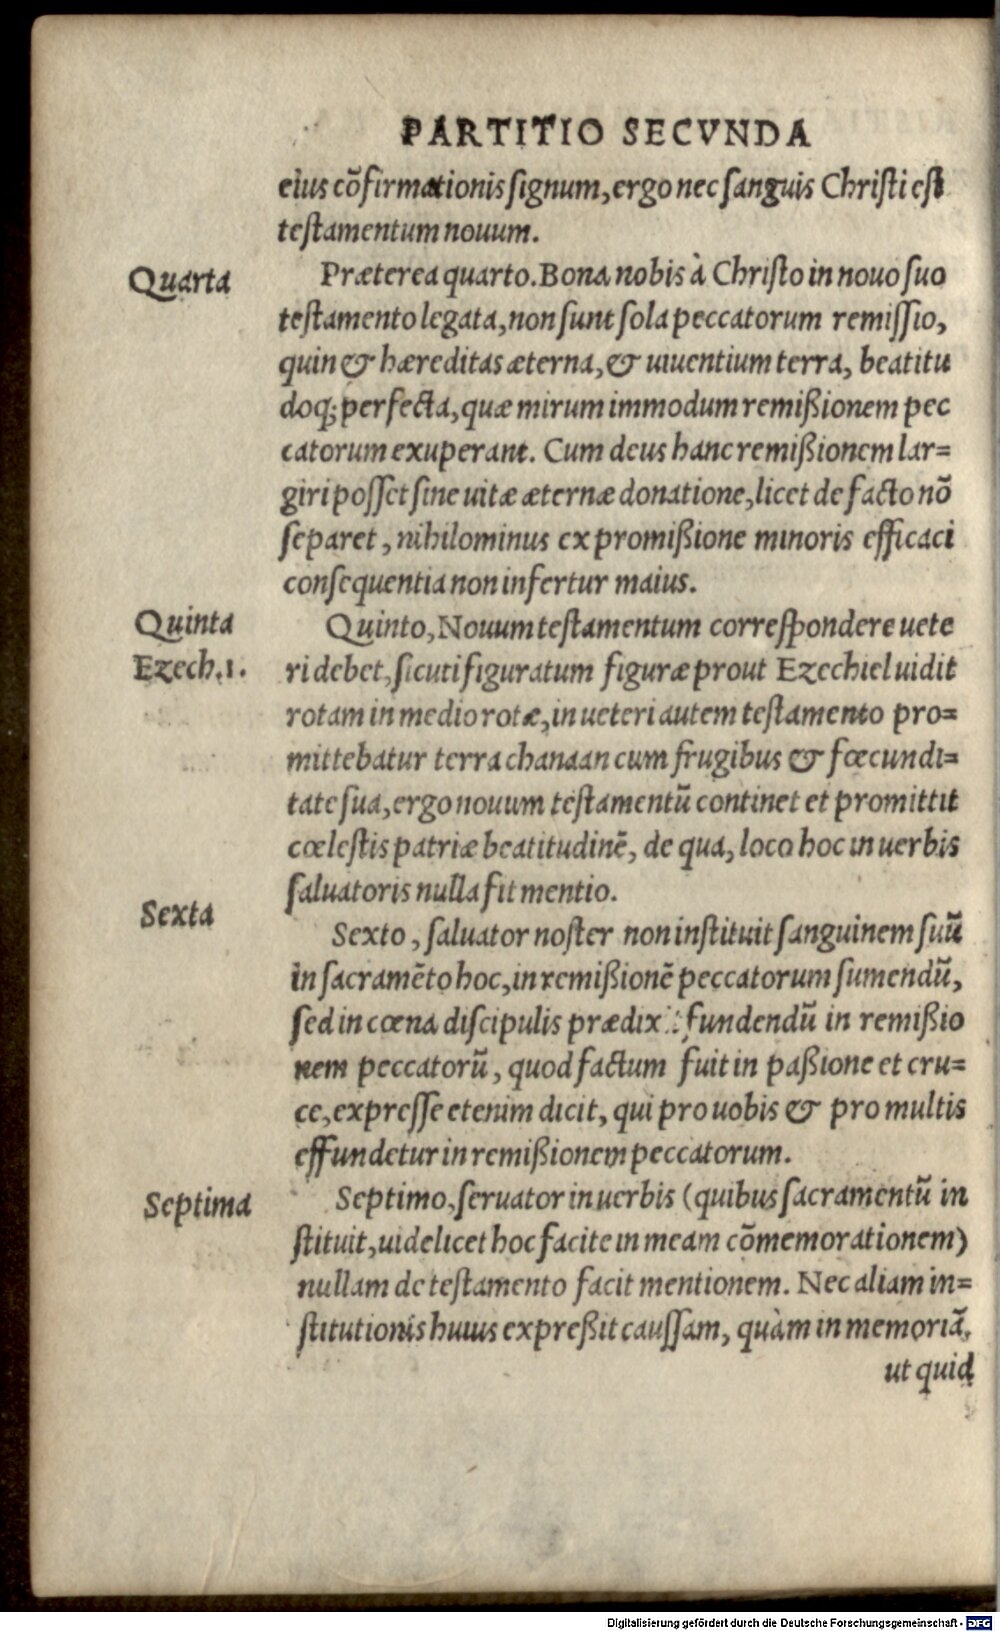 PARTITIO SECVNDA
eius cõfirmationis signum, ergo nec sanguis Christi est
testamentum nouum.
Quarta
Præterea quarto. Bona nobis à Christo in nouo suo
testamento legata, non sunt sola peccatorum remissio,
quin & hæreditas æterna, & uiuentium terra, beatitu
doq; perfecta, quæ mirum immodum remißionem pec
catorum exuperant. Cum deus hanc remißionem lar=
giri posset sine uitæ æternæ donatione, licet de facto nõ
separet, nihilominus ex promißione minoris efficaci
consequentia non infertur maius.
Quinta
Quinto, Nouum testamentum correspondere uete
Ezech. 1.
ri debet, sicuti figuratum figuræ prout Ezechiel uidit
rotam in medio rotæ, in ueteri autem testamento pro=
mittebatur terra chanaan cum frugibus & fœcundi=
tate sua, ergo nouum testamentũ continet et promittit
cœlestis patriæ beatitudinẽ, de qua, loco hoc in uerbis
saluatoris nulla fit mentio.
Sexta
Sexto, saluator noster non instituit sanguinem suũ
in sacramẽto hoc, in remißionẽ peccatorum sumendũ,
sed in cœna discipulis prædix fundendũ in remißio
nem peccatorũ, quod factum fuit in paßione et cru=
ce, expresse etenim dicit, qui pro uobis & pro multis
effundetur in remißionem peccatorum.
Septima
Septimo, seruator in uerbis (quibus sacramentũ in
stituit, uidelicet hoc facite in meam cõmemorationem)
nullam de testamento facit mentionem. Nec aliam in=
stitutionis huius expreßit caussam, quàm in memoriã,
ut quid
Digitalisierung gefördert durch die Deutsche Forschungsgemeinschaft - DFG